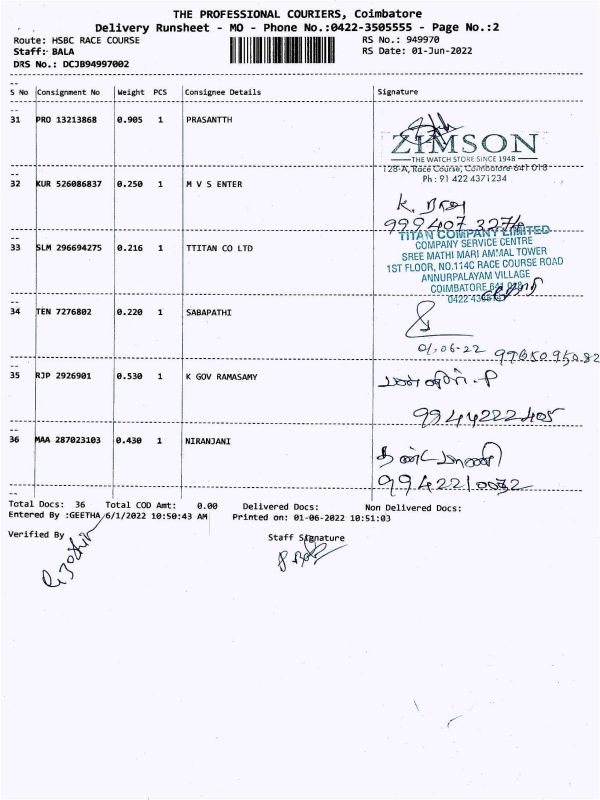 THE PROFESSIONAL COURIERS, Coimbatore
Delivery Runsheet - MO - Phone No.:0422-3505555 - Page No.:2
Route: HSBC RACE COURSE RS No.: 949970
Staff: BALA RS Date: 01-Jun-2022
DRS No.: DCJB94997002
S No Consignment No Weight PCS Consignee Details Signature
31 PRO 13213868 0.905 1 PRASANTTH
ZIMSON
THE WATCH STORE SINCE 1948
128-A, Race Course, Coimbatore-641 018
Ph : 91 422 4371234
32 KUR 526086837 0.250 1 M V S ENTER
K.
999407 3274
33 SLM 296694275 0.216 1 TTITAN CO LTD
TITAN COMPANY LIMITED
COMPANY SERVICE CENTRE
SREE MATHI MARI AMMAL TOWER
1ST FLOOR, NO.114C RACE COURSE ROAD
ANNURPALAYAM VILLAGE
COIMBATORE 641 018
0422
34 TEN 7276802 0.220 1 SABAPATHI
01.06-22
35 RJP 2926901 0.530 1 K GOV RAMASAMY
9944222405
36 MAA 287023103 0.430 1 NIRANJANI
9942210032
Total Docs: 36 Total COD Amt: 0.00 Delivered Docs: Non Delivered Docs:
Entered By :GEETHA 6/1/2022 10:50:43 AM Printed on: 01-06-2022 10:51:03
Verified By Staff Signature